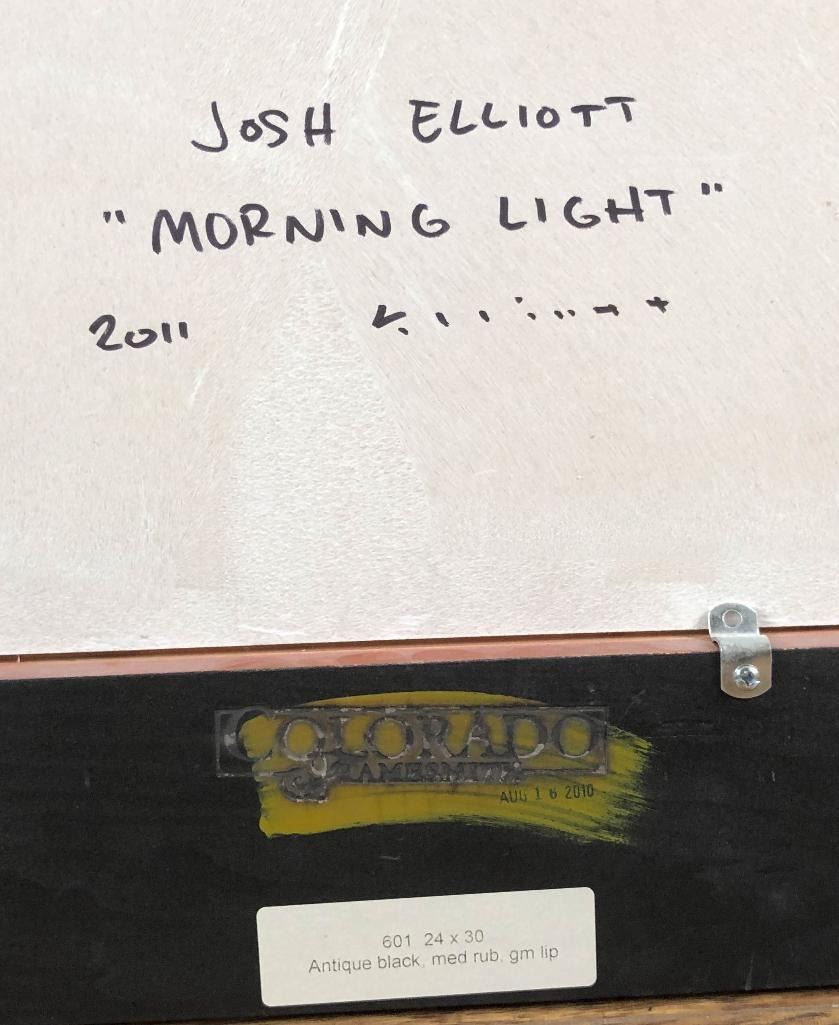 JOSH ELLIOTT
"MORNING LIGHT"
2011
COLORADO
FRAMESMITH
AUG 16 2010
601 24 x 30
Antique black, med rub, gm lip